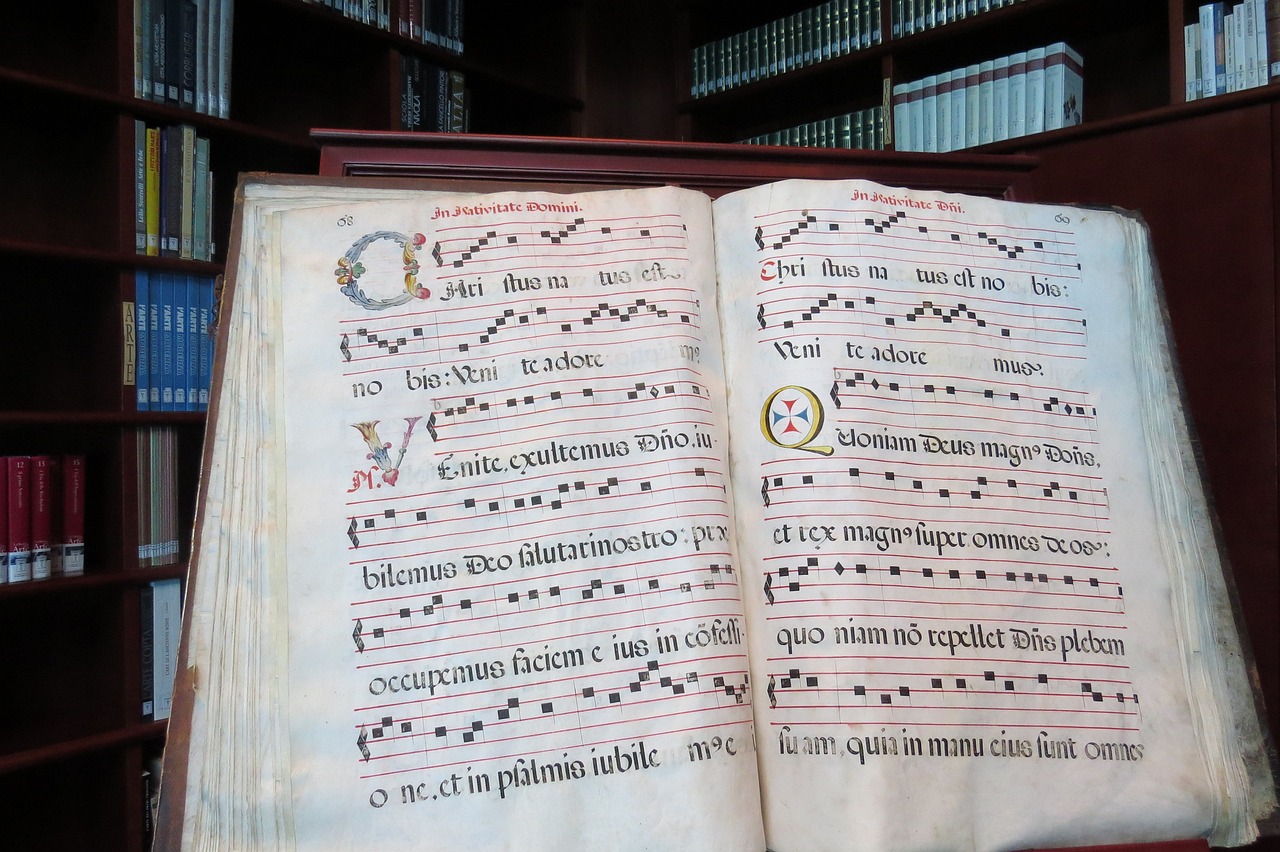 68
In Nativitate Domini.
CHri stus na tus est
no bis: Veni te adore m9
Ps. VEnite, exultemus Dño, iu-
bilemus Deo salutari nostro: præ
occupemus faciem e ius in cõfessi-
o ne, et in psalmis iubile m9 e
69
In Nativitate Dñi.
Chri stus na tus est no bis:
Veni te adore mus.
Quoniam Deus magn9 Dőns,
et rex magn9 super omnes deos:
quo niam nõ repellet Dñs plebem
suam, quia in manu eius sunt omnes
ARTE
L'ARTE
L'ARTE
L'ARTE
L'ARTE